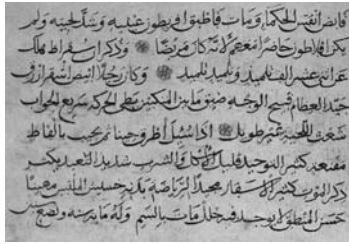 فائض انفس الحكماء ومات فاطبق افريطون عينيه وشد لحييه ولم
يكن فلاطون حاضرا معهم لانه كان مريضا وذكر ان سقراط هلك
عن اثنى عشر الف تلميذ وتلميذ تلميذ وكان رجلا ابيض اشقر ازرق
جيد العظام قبيح الوجه ضيق ما بين المنكبين بطى الحركة سريع الجواب
شعث اللحية غير طويل اذا سئل اطرق حينا ثم يجيب بالفاظ
مقنعة كثير التوحد قليل الاكل والشرب شديد التعبد يكثر
ذكر الموت كثير الاسفار مجيدا لرياضة بدنه خسيس الملبس مهيبا
حسن المنطق لا يوجد فيه خلل مات بالسم وله مايه سنه وبضع